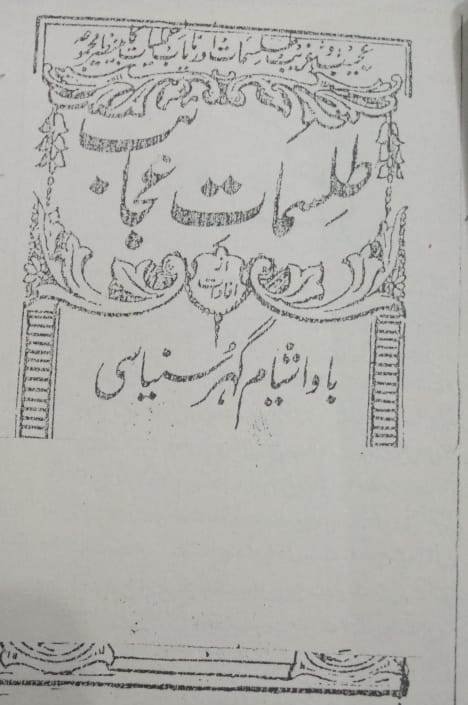 عجیب و غریب طلسمات اور نایاب عملیات کا بینظیر مجموعہ
طلسمات عجائب
از
افادات
باوا شیام گہر سنیاسی